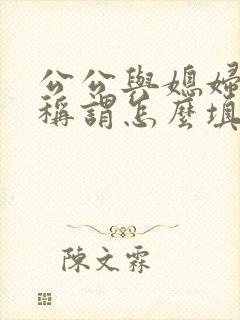 公公與媳婦
稱謂怎麼填
陳文霖